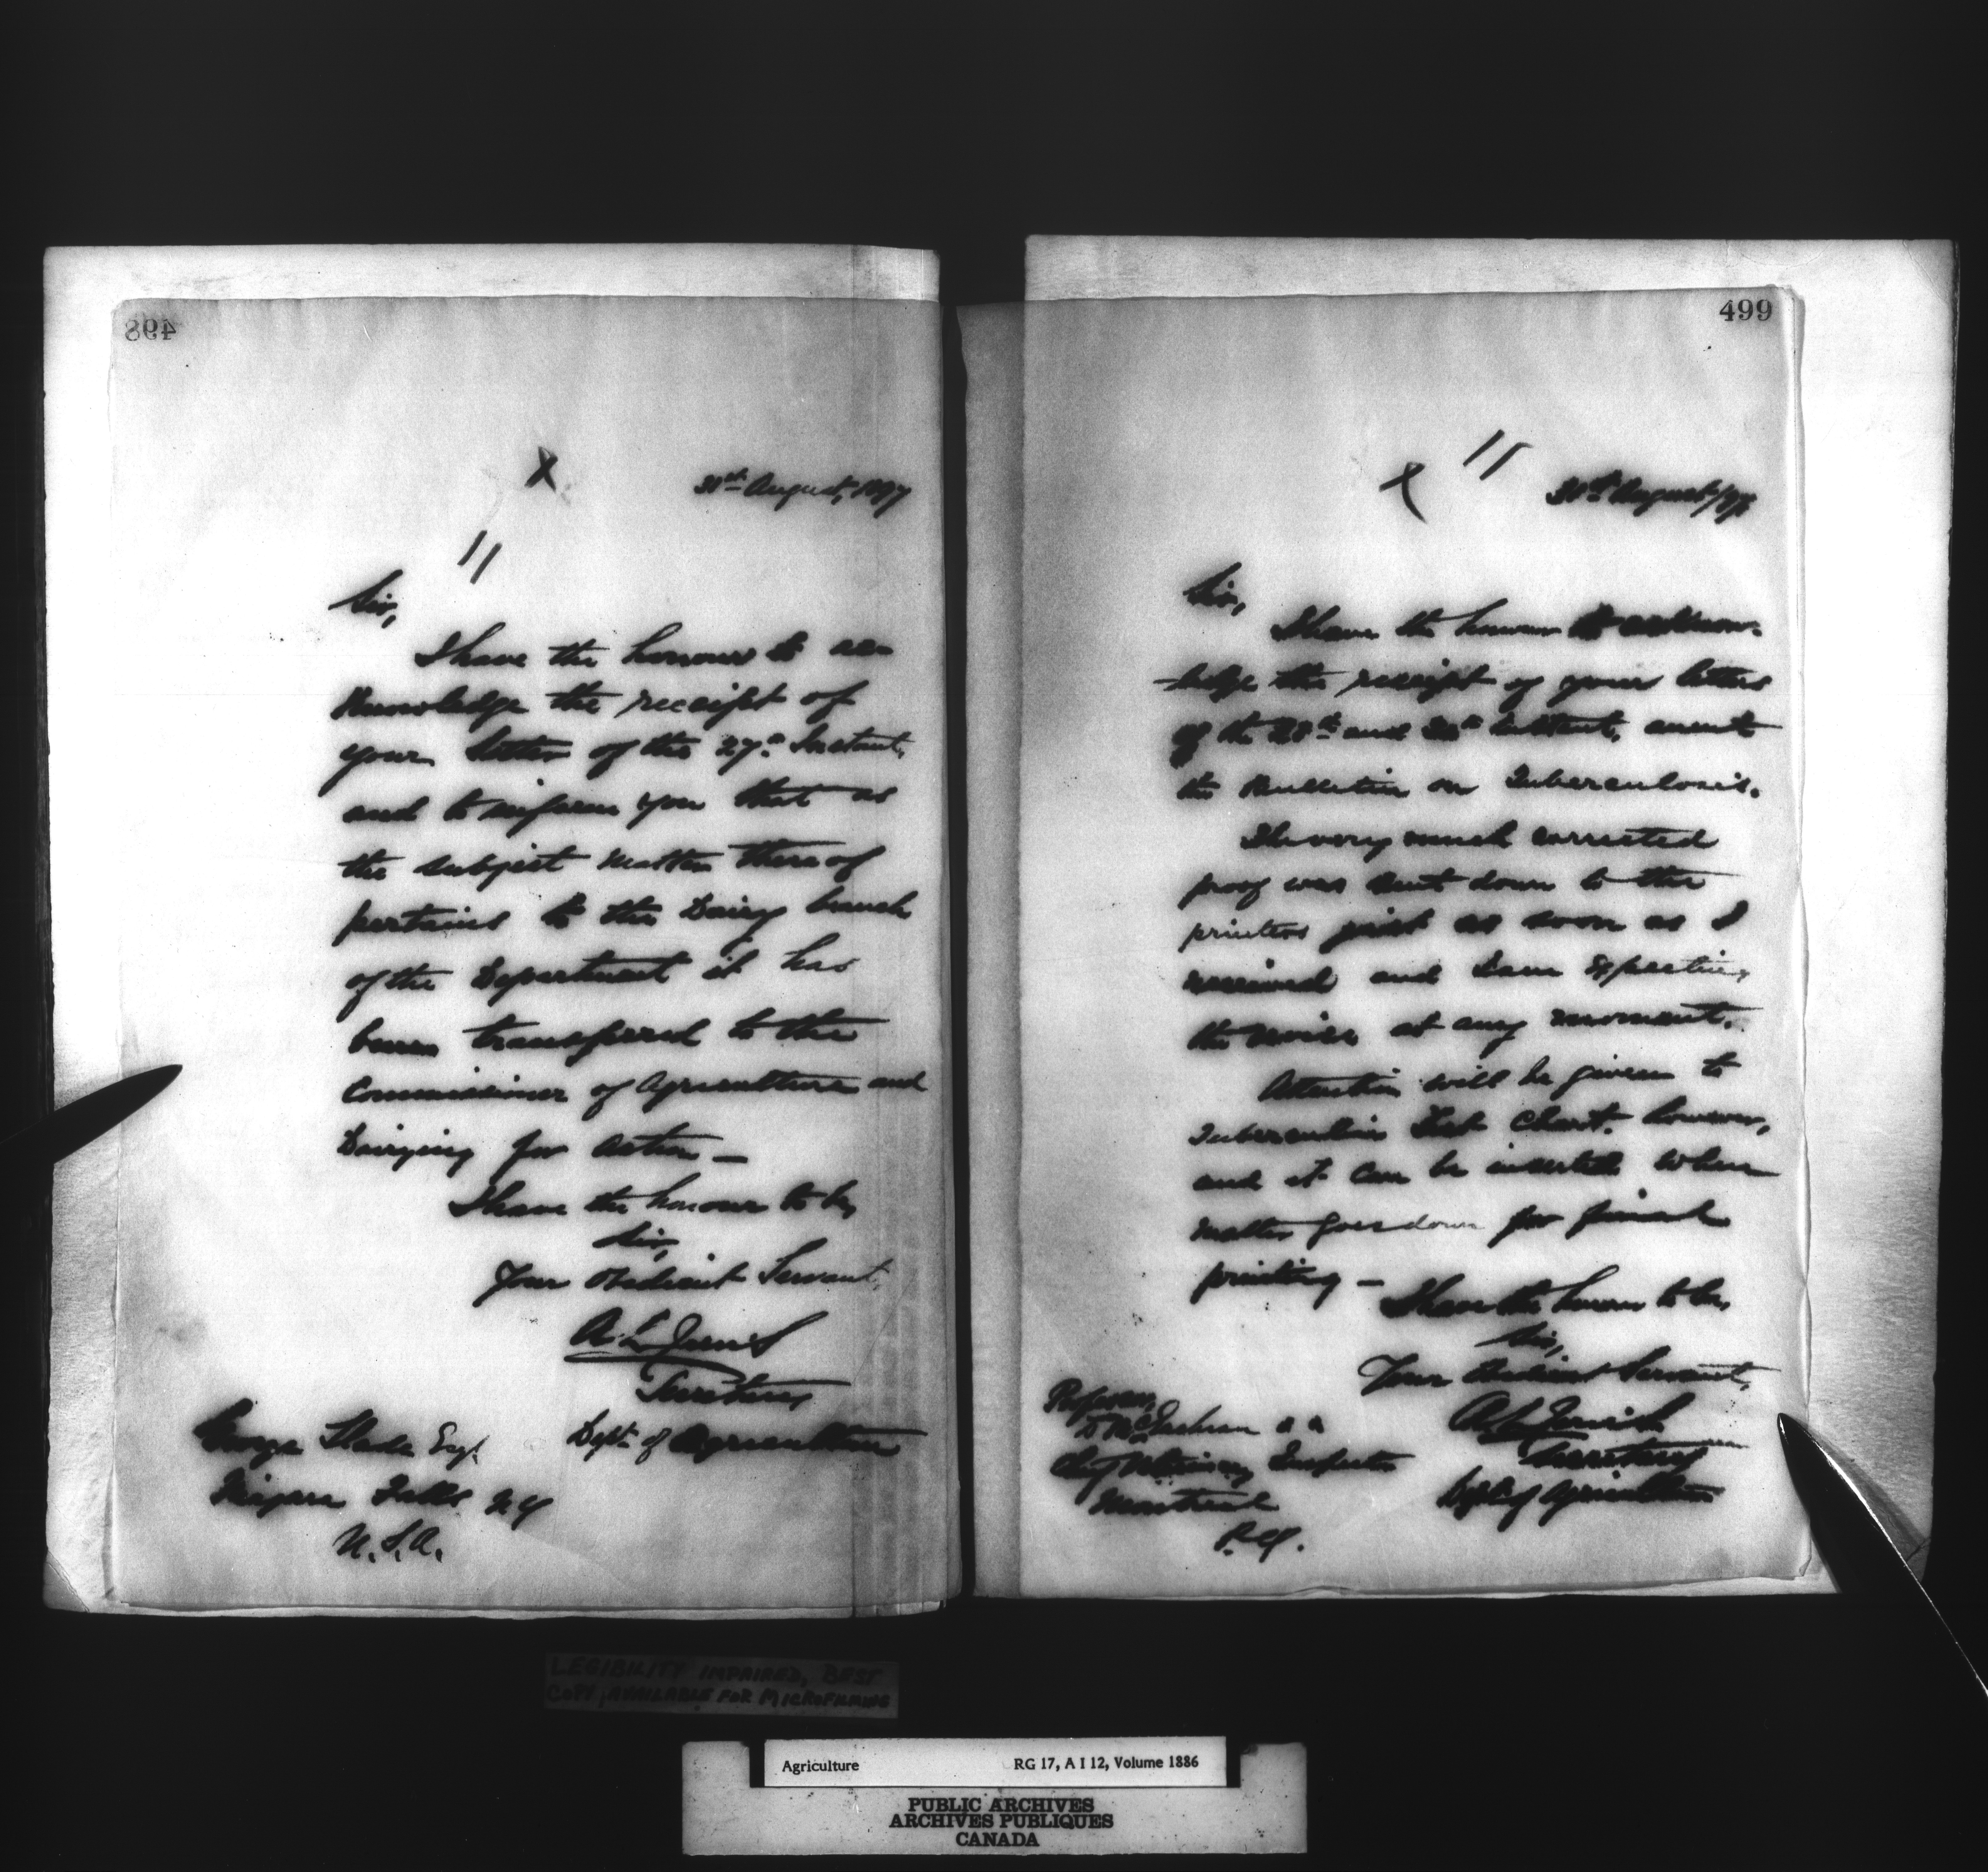 498
X
31st August, 1897
//
Sir,
I have the honour to ac-
knowledge the receipt of
your letter of the 27th Instant,
and to inform you that as
the subject matter thereof
pertains to the Dairy branch
of the Department it has
been transferred to the
Commissioner of Agriculture and
Dairying for action —
I have the honour to be,
Sir,
Your Obedient Servant,
A. L. Jarvis
Secretary
Dept. of Agriculture
George Slade Esq.
Niagara Falls N Y
U. S. A.
499
//
31st August/97
Sir,
I have the honour to acknow-
-ledge the receipt of your letters
of the 28th and 30th Instant, anent
the Bulletin on Tuberculosis.
The very much corrected
proof was sent down to the
printers just as soon as I
received and I am expecting
the revise at any moment.
Attention will be given to
Tuberculin Test Chart, however,
and it can be inserted when
matter goes down for final
printing —
I have the honour to be,
Sir,
Your Obedient Servant,
A. L. Jarvis
Secretary
Dept. of Agriculture
Professor
D McEachran
Chief Veterinary Inspector
Montreal
P. Q.
LEGIBILITY IMPAIRED, BEST
COPY AVAILABLE FOR MICROFILMING
Agriculture RG 17, A I 12, Volume 1886
PUBLIC ARCHIVES
ARCHIVES PUBLIQUES
CANADA